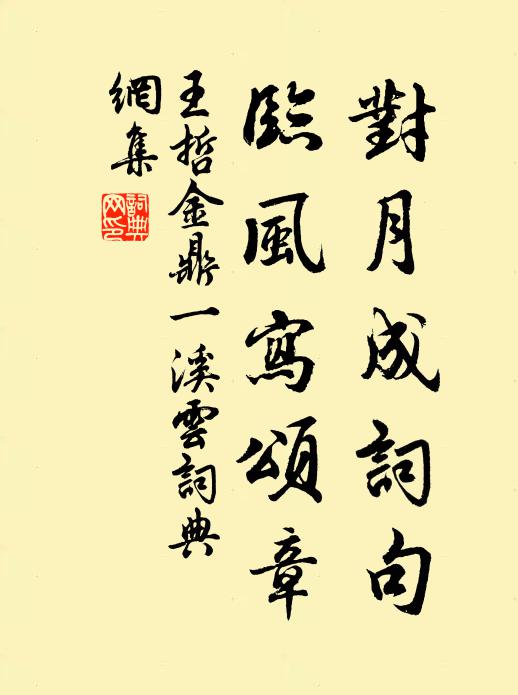 對月成詞句
臨風寫頌章
王哲金鼎一溪雲詞典
網集
詞典
网印